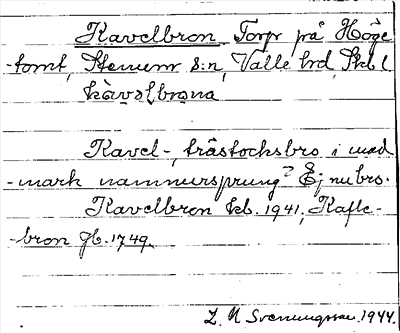 Kavelbron Torp på Höge-
-tomt, Stenums s:n, Valle hrd, Skbl
kàvəlbrona
Kavel-, trästocksbro i mad
-mark namnursprung? Ej nu bro.
Kavelbron kb. 1941, Kafle-
-bron jb. 1749.
L. N Svenungsson. 1944.